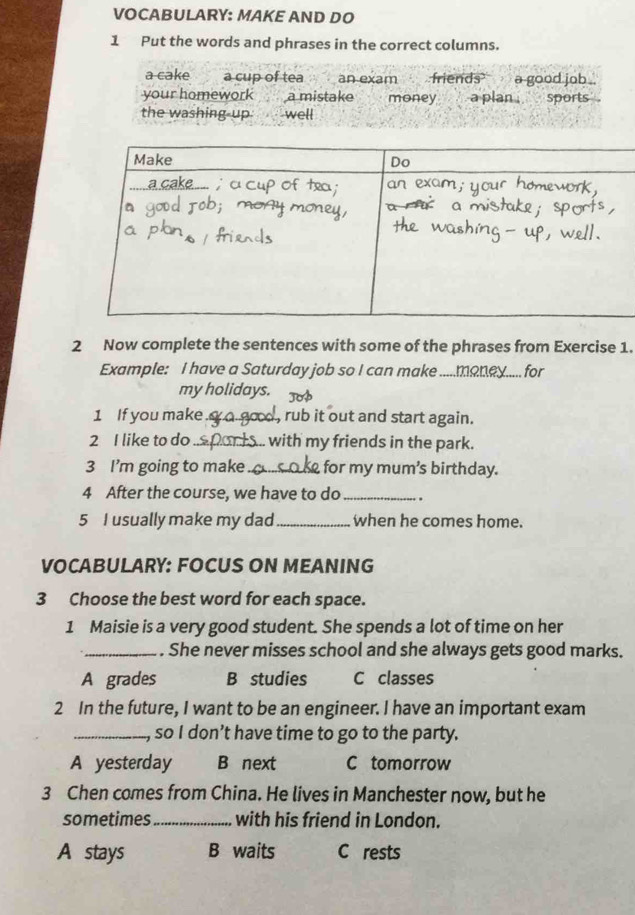 VOCABULARY: MAKE AND DO
1 Put the words and phrases in the correct columns.
a cake a cup of tea an exam friends a good job
your homework a mistake money a plan sports
the washing-up well
Make Do
a cake ; a cup of tea; an exam; your homework,
a good Job; money, a mistake; sports,
a plan, friends the washing-up, well.
2 Now complete the sentences with some of the phrases from Exercise 1.
Example: I have a Saturday job so I can make .....money..... for
my holidays.
Job
1 If you make a good, rub it out and start again.
2 I like to do ..sports.. with my friends in the park.
3 I'm going to make ..a..cake for my mum's birthday.
4 After the course, we have to do .................. .
5 I usually make my dad .................. when he comes home.
VOCABULARY: FOCUS ON MEANING
3 Choose the best word for each space.
1 Maisie is a very good student. She spends a lot of time on her
.................. . She never misses school and she always gets good marks.
A grades B studies C classes
2 In the future, I want to be an engineer. I have an important exam
.................., so I don't have time to go to the party.
A yesterday B next C tomorrow
3 Chen comes from China. He lives in Manchester now, but he
sometimes .................. with his friend in London.
A stays B waits C rests